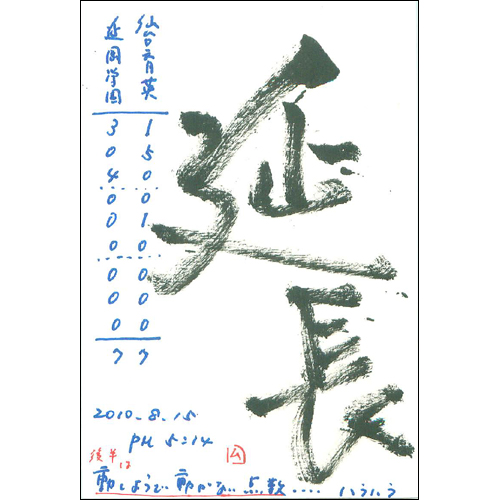 延長
仙台育英
1 5 0 0 1 0 0 0 0 7
延岡学園
3 0 4 0 0 0 0 0 0 7
2010.8.15
PM 5:14
後半は
動しようで動かない点数....ハラハラ